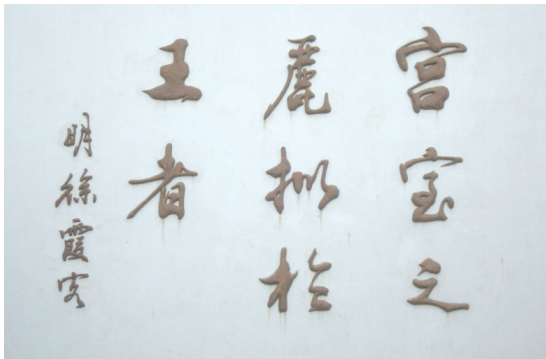 宫室之
麗拟於
王者
明徐霞客